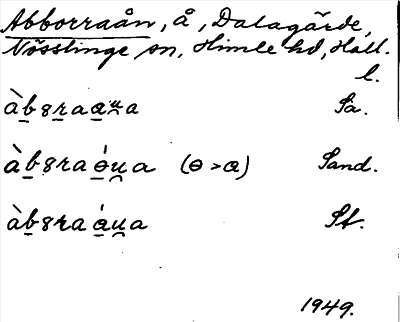 Abborraån, å, Dalagärde,
Nösslinge sn, Himle hd, Hall.
l.
àb̲ꝸr̲aa̲u̯a Sa.
àb̲ꝸraɵ̲́u̯a (ɵ>a) Sand.
àb̲ꝸraá̲u̯a St.
1949.